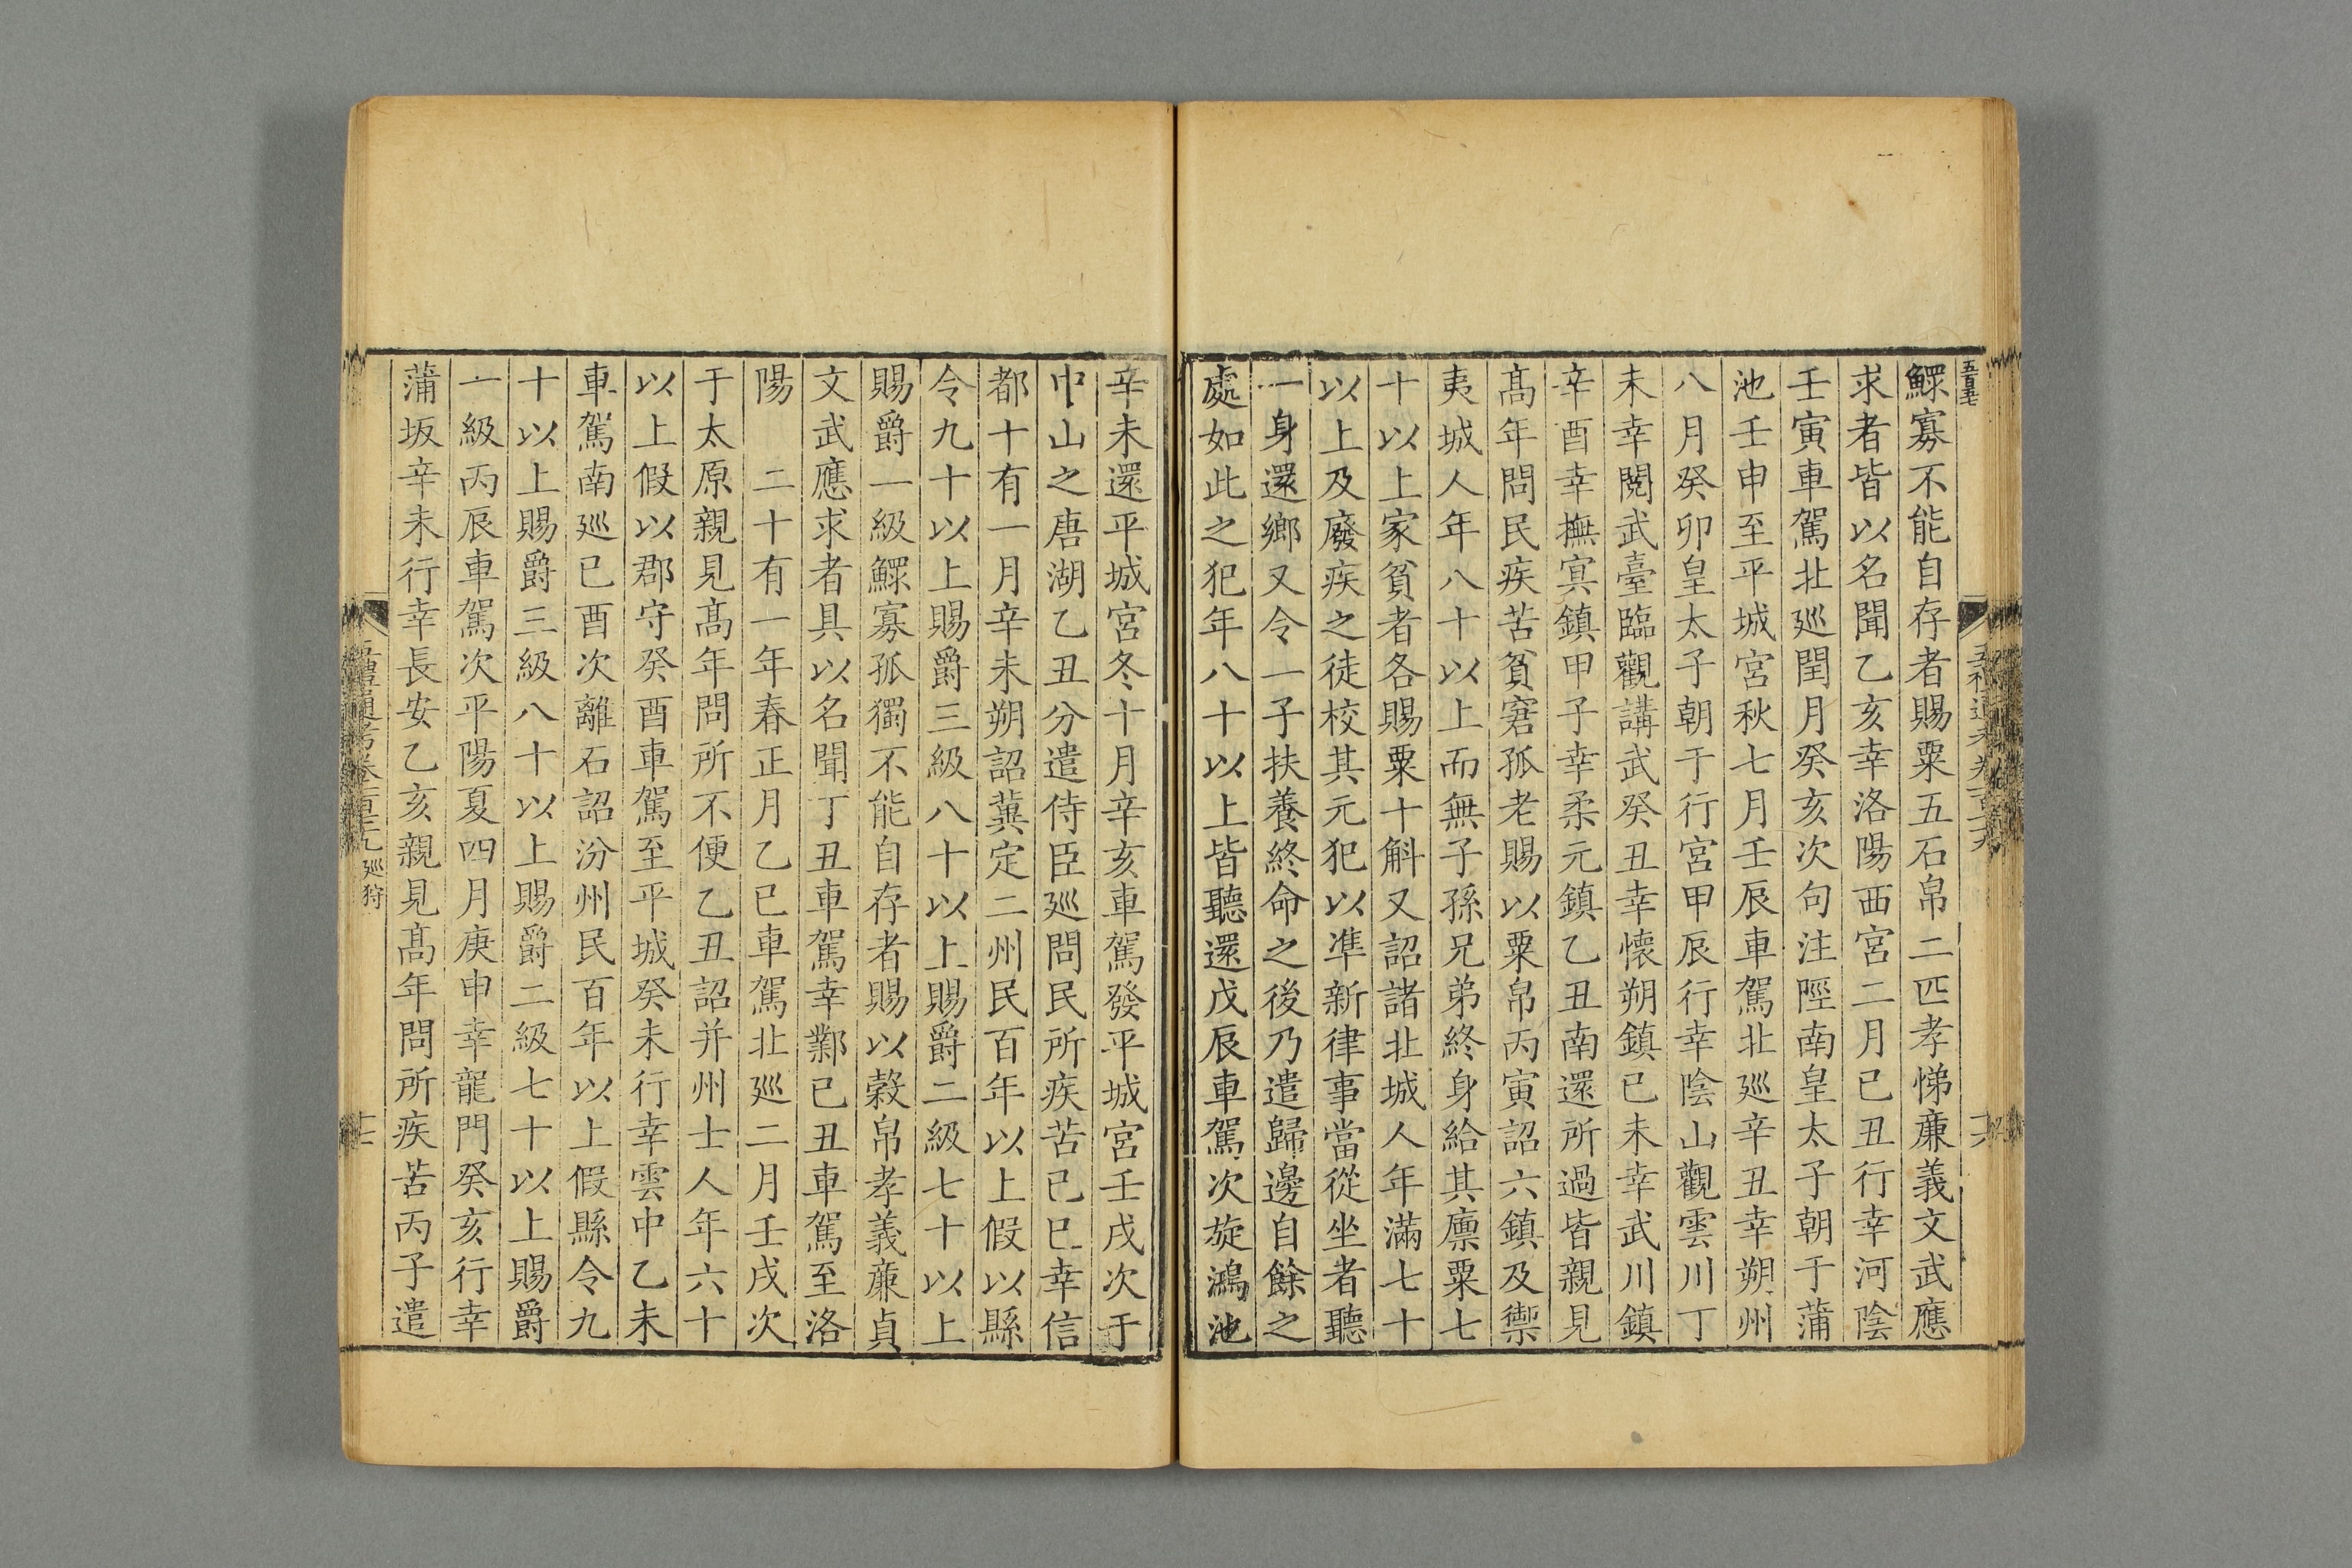 鰥寡不能自存者賜粟五石帛二匹孝悌廉義文武應
求者皆以名聞乙亥幸洛陽西宮二月己丑行幸河陰
壬寅車駕北廵閏月癸亥次句注陘南皇太子朝于蒲
池壬申至平城宮秋七月壬辰車駕北廵辛丑幸朔州
八月癸卯皇太子朝于行宮甲辰行幸陰山觀雲川丁
未幸閱武臺臨觀講武癸丑幸懐朔鎮己未幸武川鎮
辛酉幸撫㝠鎮甲子幸柔元鎮乙丑南還所過皆親見
髙年問民疾苦貧窘孤老賜以粟帛丙寅詔六鎮及禦
夷城人年八十以上而無子孫兄弟終身給其廪粟七
十以上家貧者各賜粟十斛又詔諸北城人年滿七十
以上及廢疾之徒校其元犯以凖新律事當從坐者聽
一身還鄉又令一子扶養終命之後乃遣歸邊自餘之
處如此之犯年八十以上皆聽還戊辰車駕次旋鴻池
辛未還平城宮冬十月辛亥車駕發平城宮壬戌次于
中山之唐湖乙丑分遣侍臣廵問民所疾苦己巳幸信
都十有一月辛未朔詔冀定二州民百年以上假以縣
令九十以上賜爵三級八十以上賜爵二級七十以上
賜爵一級鰥寡孤獨不能自存者賜以穀帛孝義廉貞
文武應求者具以名聞丁丑車駕幸鄴己丑車駕至洛
陽　二十有一年春正月乙巳車駕北廵二月壬戌次
于太原親見髙年問所不便乙丑詔并州士人年六十
以上假以郡守癸酉車駕至平城癸未行幸雲中乙未
車駕南廵己酉次離石詔汾州民百年以上假縣令九
十以上賜爵三級八十以上賜爵二級七十以上賜爵
一級丙辰車駕次平陽夏四月庚申幸龍門癸亥行幸
蒲坂辛未行幸長安乙亥親見髙年問所疾苦丙子遣
廵狩